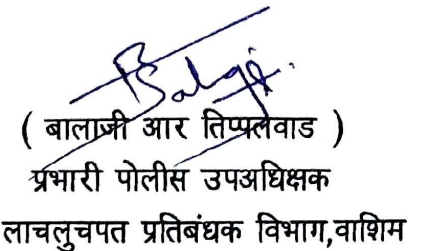 ( बालाजी आर तिप्पलवाड )
प्रभारी पोलीस उपअधिक्षक
लाचलुचपत प्रतिबंधक विभाग,वाशिम